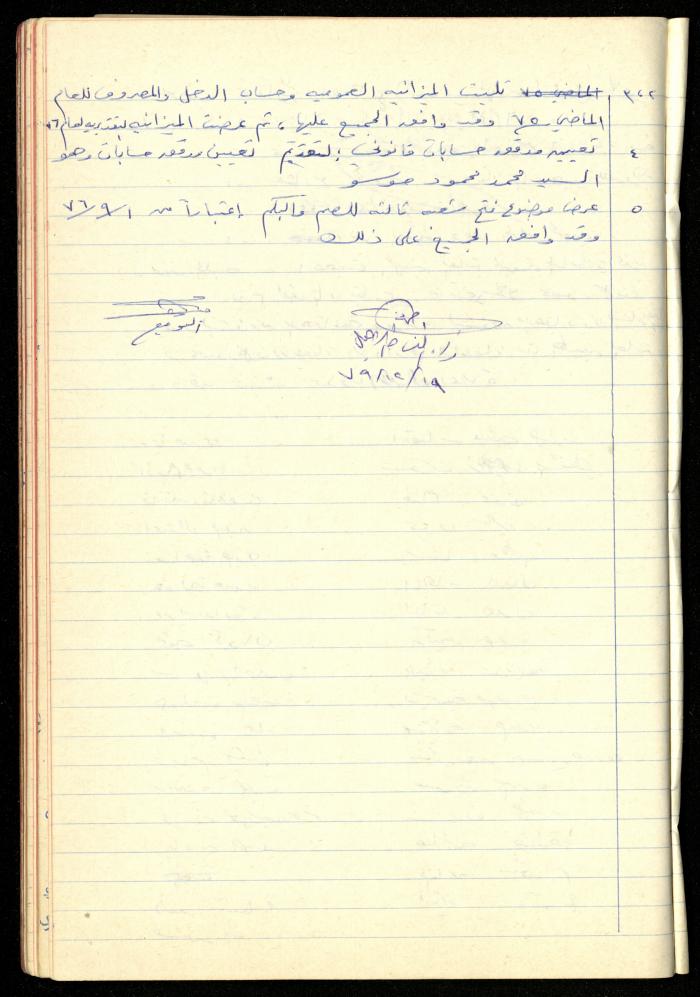 ٣،٢ الماضي ٧٥ تليت الميزانيه العموميه وحساب الدخل والمصروف للعام
الماضي ٧٥ وقد وافق الجميع عليها، ثم عرضت الميزانيه التقديريه لعام ٧٦
٤ تعيين مدقق حسابات قانوني: لتقديم تعيين مدقق حسابات وهو
السيد محمد محمود
٥ عرض موضوع فتح شعبه ثالثه للصم والبكم إعتباراً من ٧٦/٩/١
وقد وافق الجميع على ذلك
التوقيع
٧٩/١٢/١٩